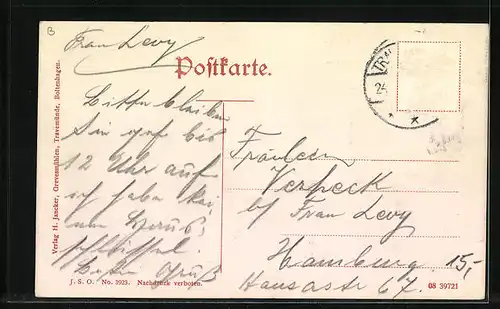 B
Frau Levy
Postkarte.
Bitte bleiben
Sie auf bis
12 Uhr auf
ich habe kei-
nen Haus-
schlüssel.
Besten Gruß
Fräulein
Verpeck
b/ Frau Levy
Hamburg
15,-
Hansastr 67.
Verlag H. Jancker, Grevesmühlen, Travemünde, Boltenhagen.
J. S. O. No. 3923. Nachdruck verboten.
08 39721